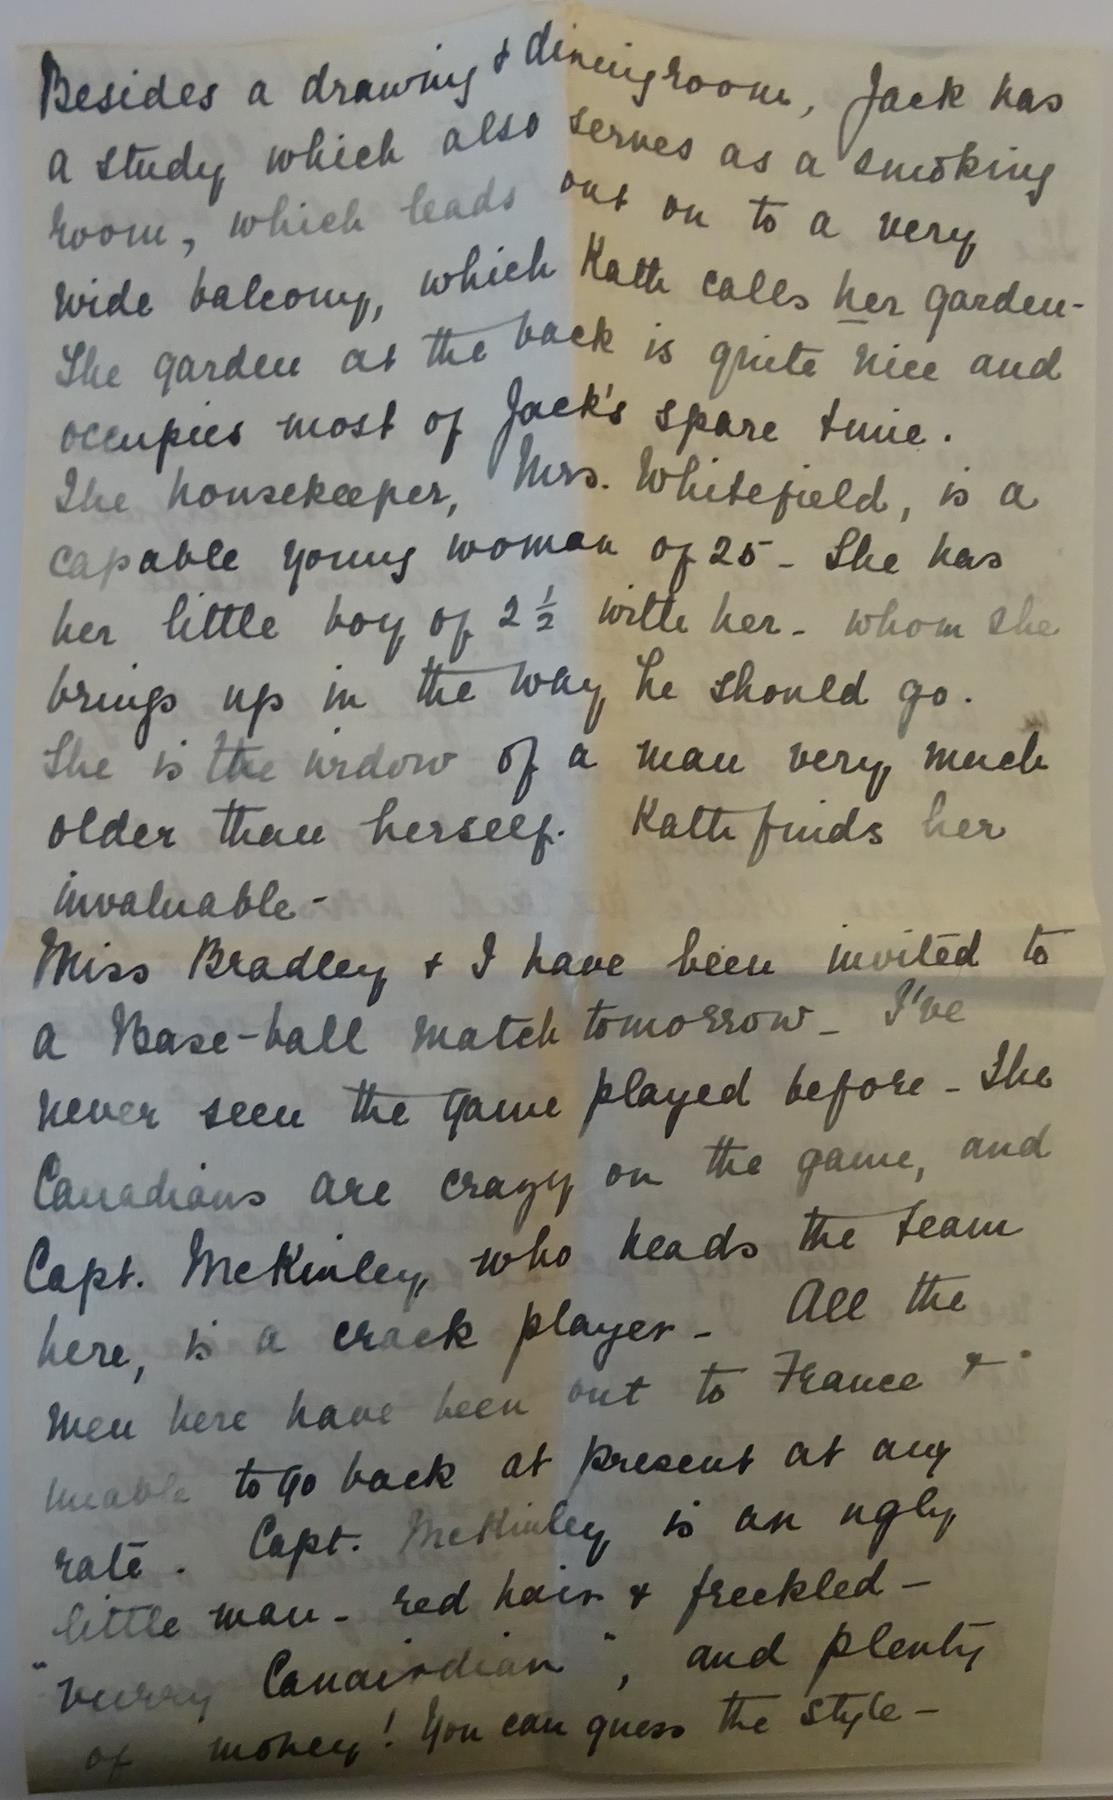 Besides a drawing & diningroom, Jack has
a study which also serves as a smoking
room, which leads out on to a very
wide balcony, which Kath calls her garden -
The garden at the back is quite nice and
occupies most of Jack's spare time.
The housekeeper, Mrs. Whitefield, is a
capable young woman of 25 - She has
her little boy of 2 ½ with her - whom she
brings up in the way he should go.
She is the widow of a man very much
older than herself. Kath finds her
invaluable -
Miss Bradley & I have been invited to
a Base-ball match tomorrow - I've
never seen the game played before - The
Canadians are crazy on the game, and
Capt. McKinley, who heads the team
here, is a crack player - All the
men here have been out to France &
unable to go back at present at any
rate. Capt. McKinley is an ugly
little man - red hair & freckled -
"vurry Canairdian", and plenty
of money! You can guess the style -